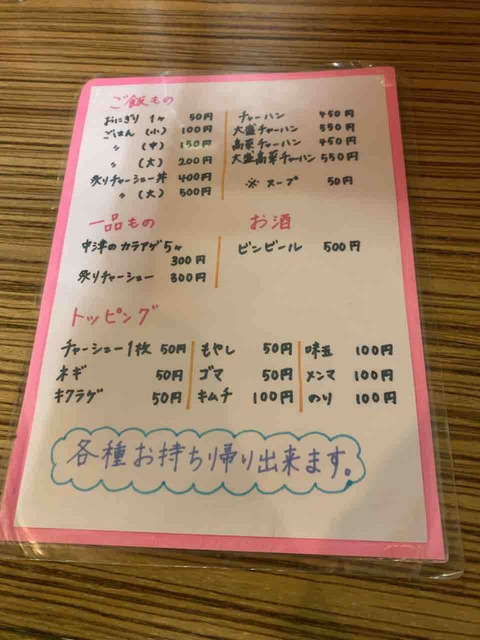 ご飯もの
おにぎり 1ヶ 50円
ごはん (小) 100円
〃 (中) 150円
〃 (大) 200円
炙りチャーシュー丼 400円
〃 (大) 500円
チャーハン 450円
大盛チャーハン 550円
高菜チャーハン 450円
大盛高菜チャーハン 550円
※ スープ 50円
一品もの
中津のカラアゲ5ヶ
300円
炙りチャーシュー 300円
お酒
ビンビール 500円
トッピング
チャーシュー1枚 50円
ネギ 50円
キクラゲ 50円
もやし 50円
ゴマ 50円
キムチ 100円
味玉 100円
メンマ 100円
のり 100円
各種お持ち帰り出来ます。